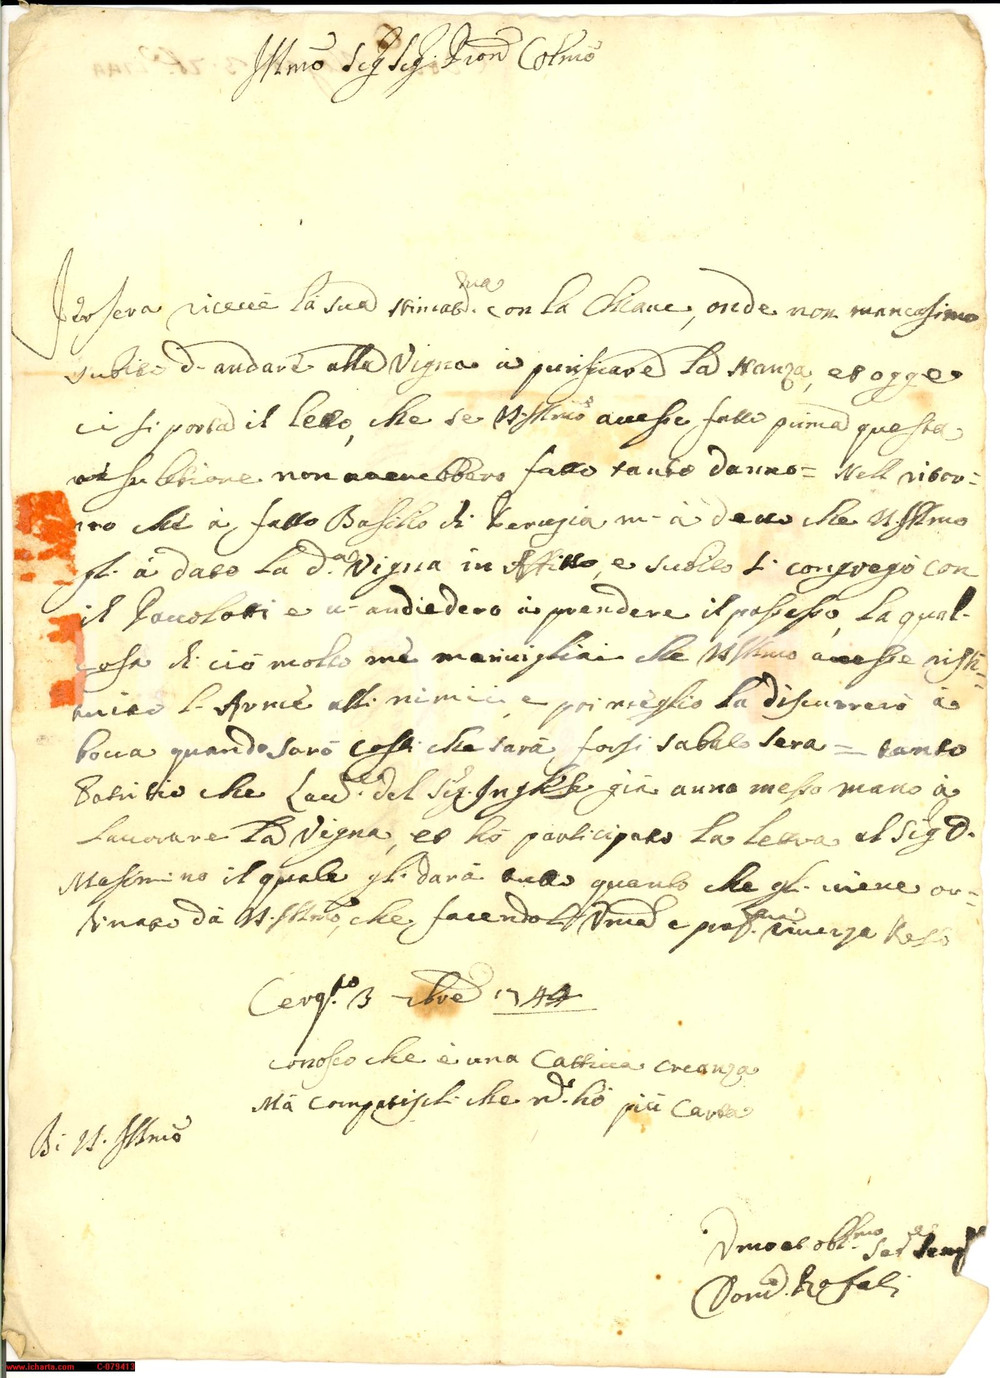 Illmo Sig Sig: Pron Colmo
Iersera riceuè la sua stimatma con la Chiaue, onde non mancassimo
subito d'andare alla Vigna à purificare la stanza, et ogge
ci si porta il letto, che se V.S. Illma auesse fatto prima questa
non auerebbero fatto tanto danno = Nell ritor=
no che à fatto Basilio di Perugia m'à detto che V.S. Illma
gli à dato la d.a Vigna in Affitto, e subito si congregò con
il e u'andiedero à prendere il possesso, la qual
cosa di ciò molto mè marauigliai che V.S. Illma auesse
l'Arme alli nimici, e poi meglio la discurrerò à
bocca quando sarò costi che sarà forsi sabato sera = tanto
che del Sig. Inglese già anno messo mano à
lauorare la Vigna, et hò participato la lettra al Sig D.
Massimino il quale gli darà tutto quanto che gli uiene or=
dinato dà V.S. Illma, che facendoli Uma e prof.ma riuerza Resto
Cerq.to 3 xbre 1744
conosco che è una Cattiua creanza
Mà compatischi che nò hò più Carta
Di V.S. Illma
Umo et obl.mo Ser.re
Dom.co Rosali
www.icharta.com C-079413